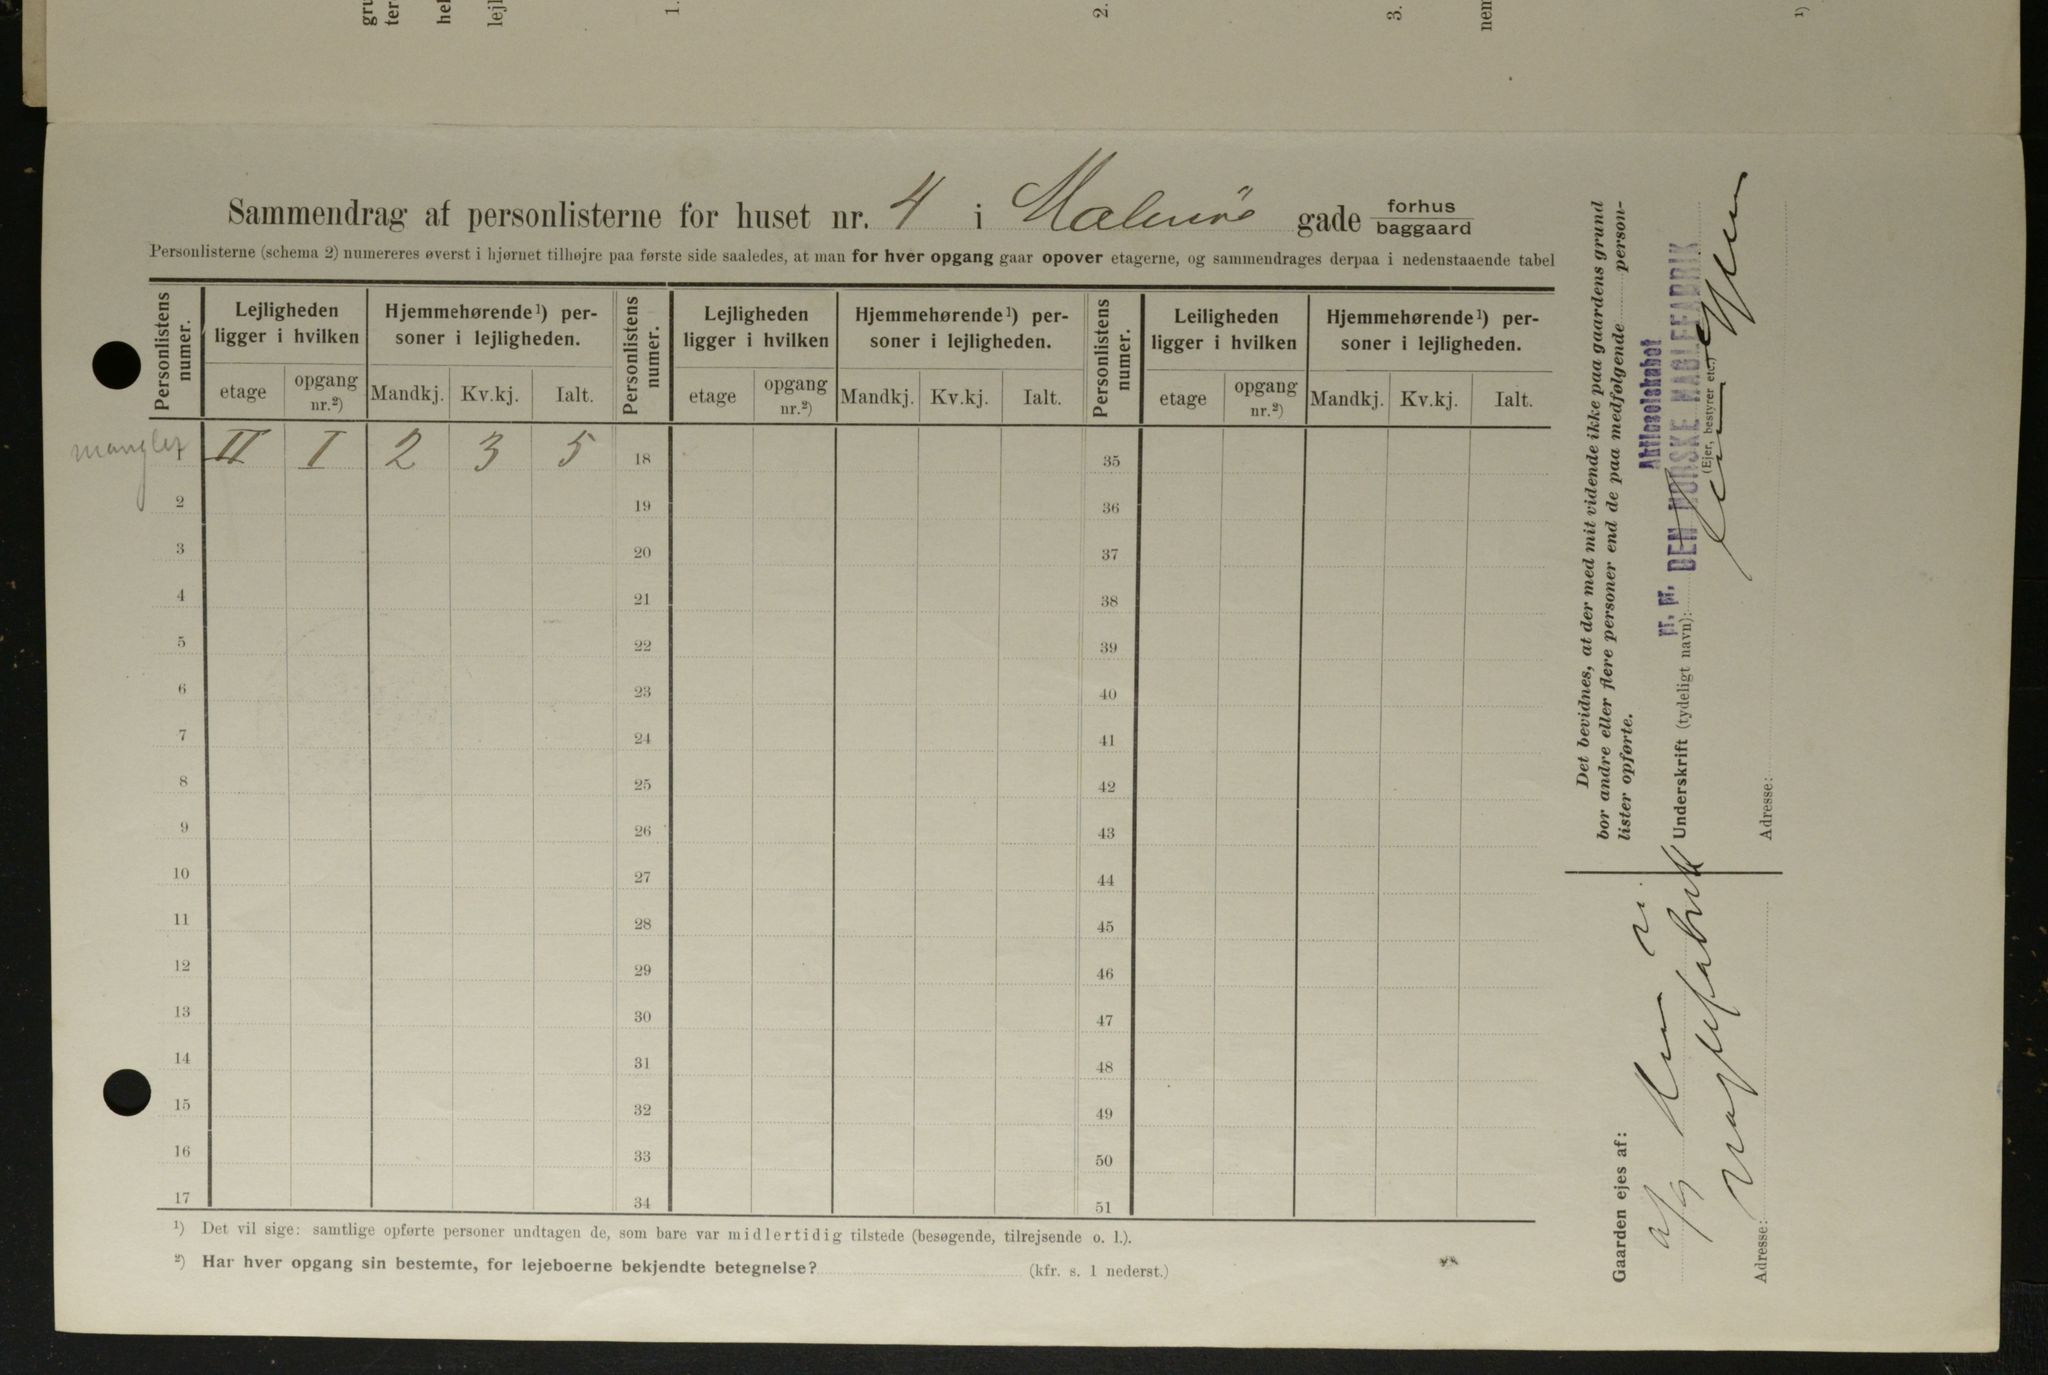 Sammendrag af personlisterne for huset nr. 4 i Malmö gade forhus baggaard
Personlisterne (schema 2) numereres øverst i hjørnet tilhøjre paa første side saaledes, at man for hver opgang gaar opover etagerne, og sammendrages derpaa i nedenstaaende tabel
Personlistens numer.
Lejligheden ligger i hvilken
Hjemmehørende¹) personer i lejligheden.
Personlistens numer.
Lejligheden ligger i hvilken
Hjemmehørende¹) personer i lejligheden.
Personlistens numer.
Leiligheden ligger i hvilken
Hjemmehørende¹) personer i lejligheden.
etage opgang nr.²) Mandkj. Kv.kj. Ialt.
etage opgang nr.²) Mandkj. Kv.kj. Ialt.
etage opgang nr.²) Mandkj. Kv.kj. Ialt.
mangler
1 II I 2 3 5 18 35
2 19 36
3 20 37
4 21 38
5 22 39
6 23 40
7 24 41
8 25 42
9 26 43
10 27 44
11 28 45
12 29 46
13 30 47
14 31 48
15 32 49
16 33 50
17 34 51
¹) Det vil sige: samtlige opførte personer undtagen de, som bare var midlertidig tilstede (besøgende, tilrejsende o. l.).
²) Har hver opgang sin bestemte, for lejeboerne bekjendte betegnelse? (kfr. s. 1 nederst.)
Det bevidnes, at der med mit vidende ikke paa gaardens grund
bor andre eller flere personer end de paa medfølgende person-
lister opførte.
Aktieselskabet
pr. pr. DEN NORSKE NAGLEFABRIK
Underskrift (tydeligt navn):
(Ejer, bestyrer etc.)
Adresse:
Gaarden ejes af:
Naglefabrik
Adresse:
1.
2.
3.
¹)